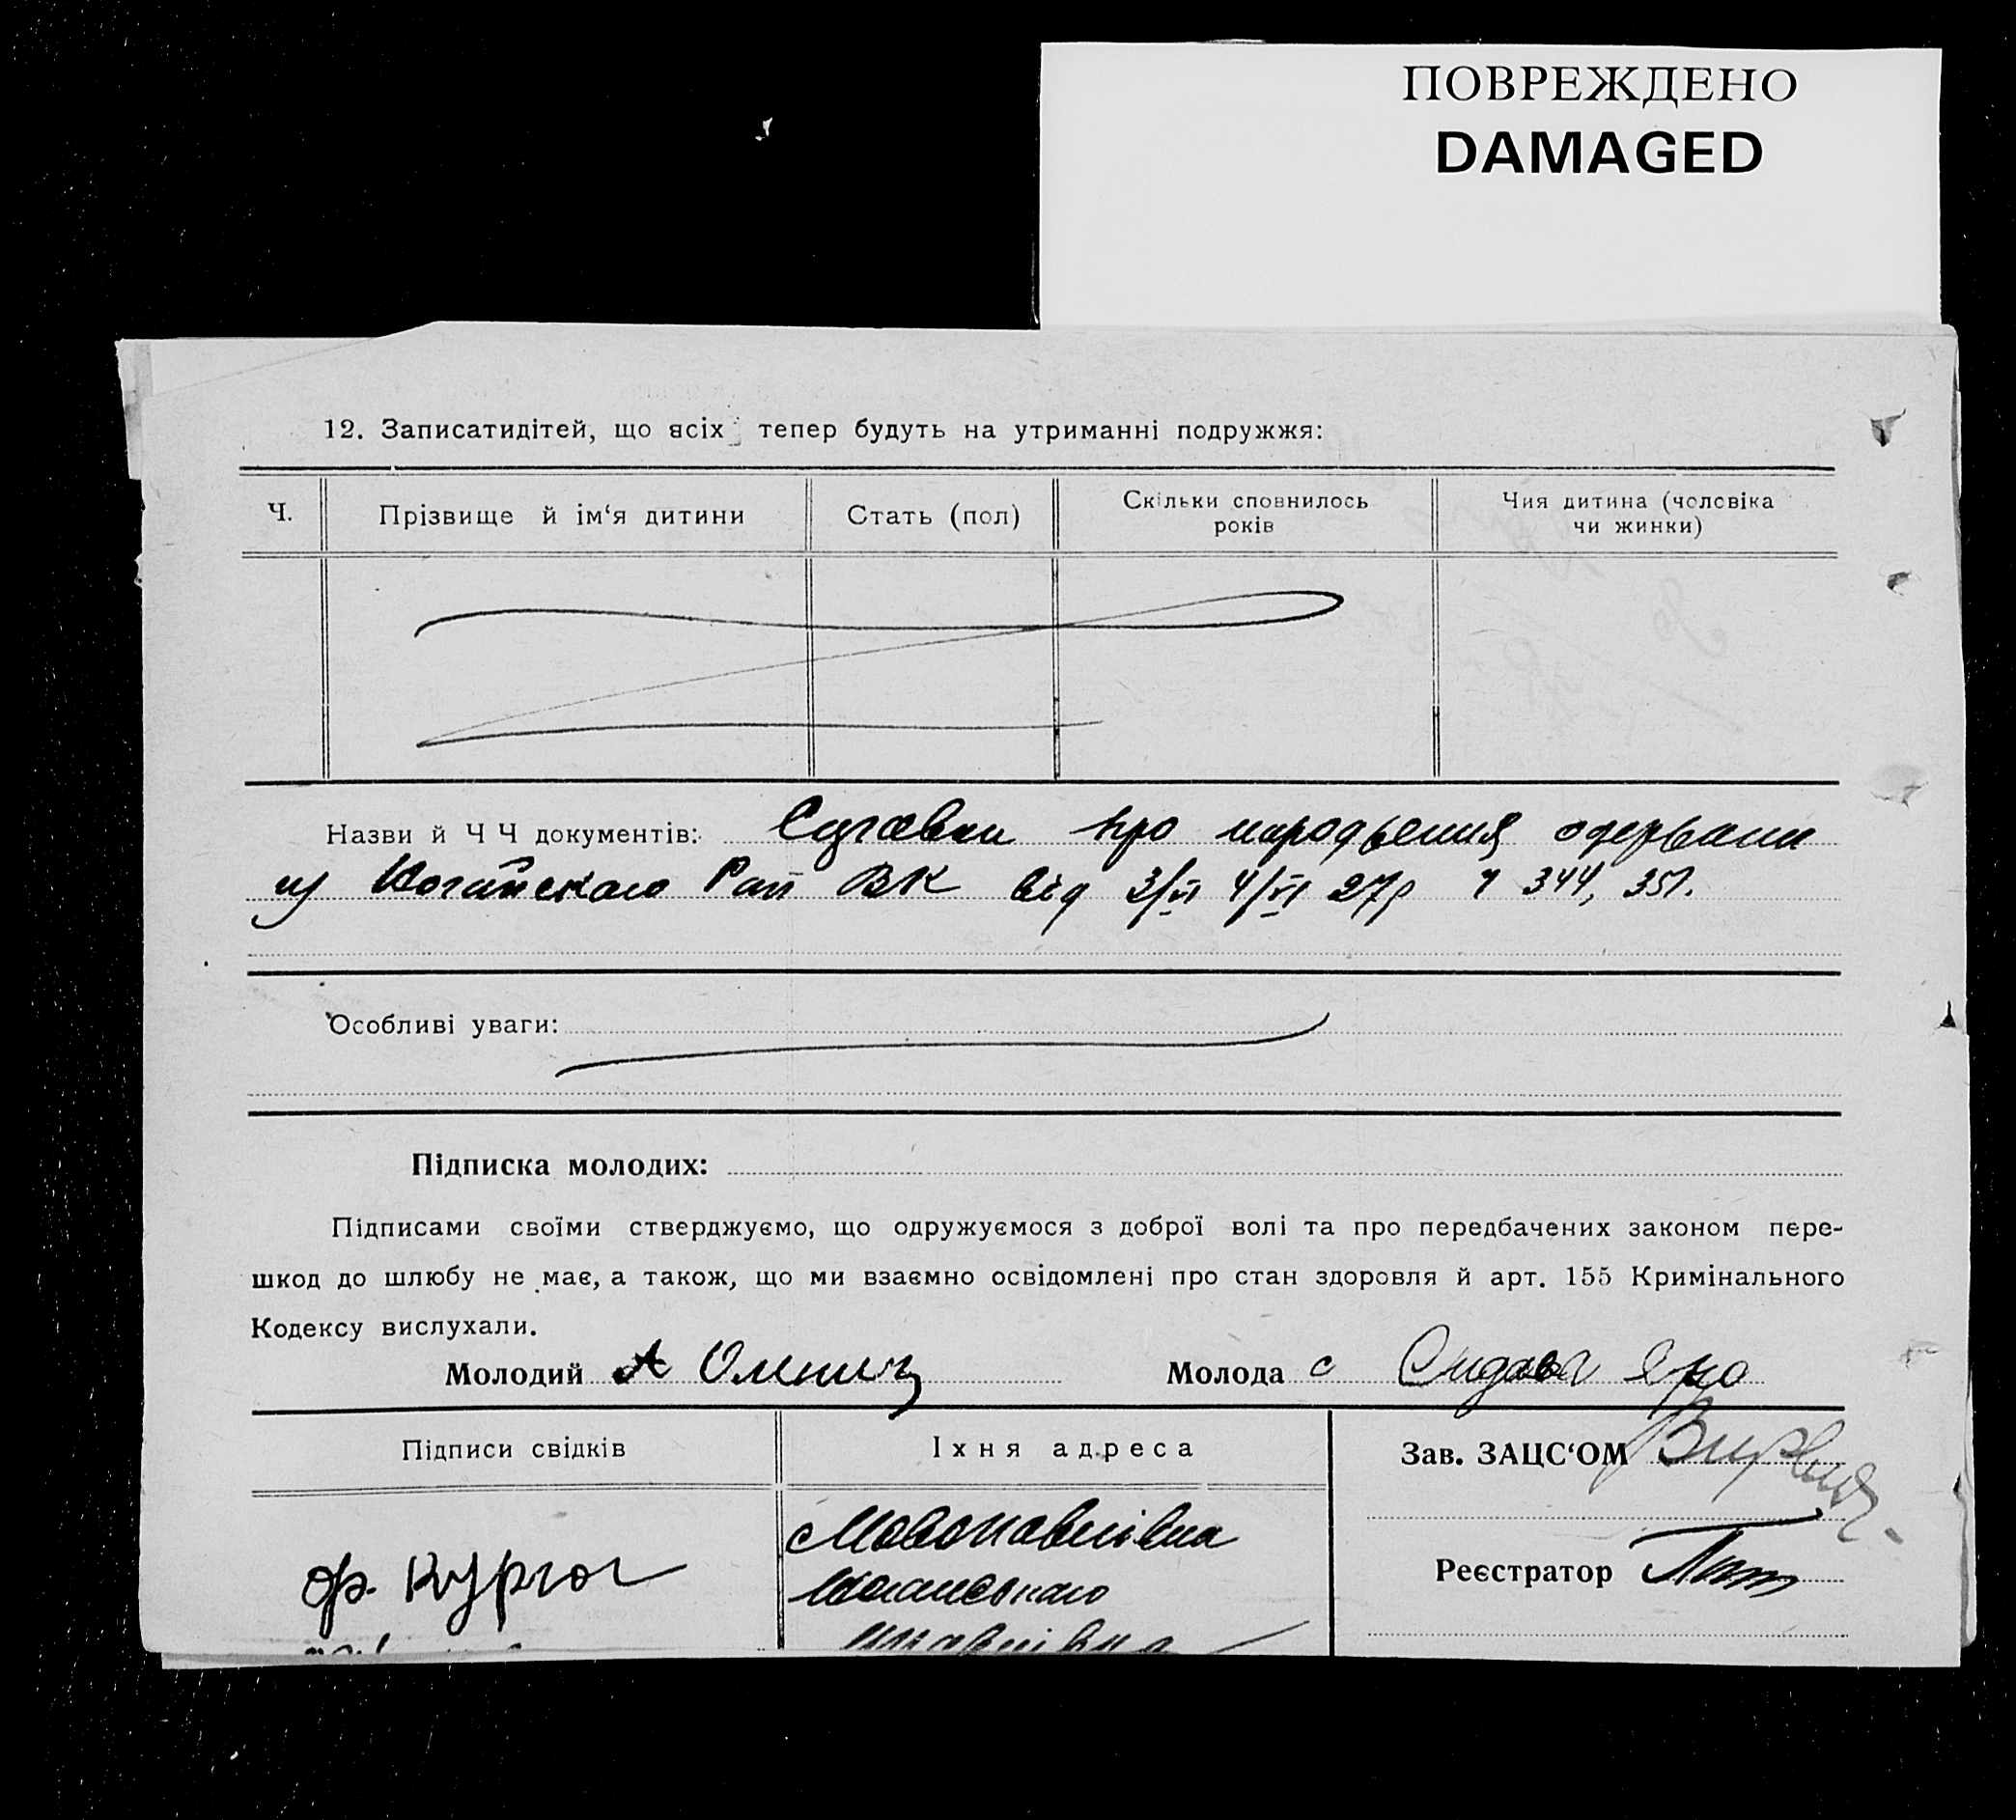 ПОВРЕЖДЕНО
DAMAGED
12. Записатидітей, що всіх тепер будуть на утриманні подружжя:
Ч.
Прізвище й ім‘я дитини
Стать (пол)
Скільки сповнилось
років
Чия дитина (чоловіка
чи жинки)
Назви й Ч Ч документів: про народження одержани
Рай ВК від 3/VI 4/VI 27р ч 344, 351.
Особливі уваги:
Підписка молодих:
Підписами своїми стверджуємо, що одружуємося з доброї волі та про передбачених законом пере-
шкод до шлюбу не має, а також, що ми взаємно освідомлені про стан здоровля й арт. 155 Кримінального
Кодексу вислухали.
Молодий А Молода
Підписи свідків
Іхня адреса
Зав. ЗАЦС‘ОМ
Реєстратор